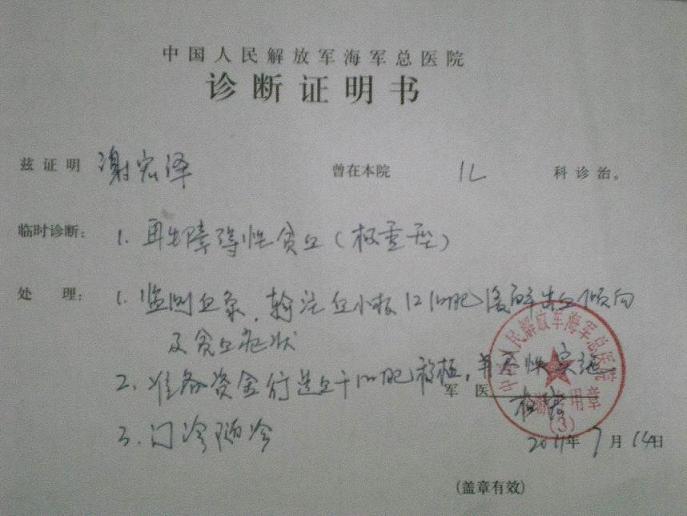 中国人民解放军海军总医院
诊断证明书
兹证明 谢宏泽 曾在本院 儿 科诊治。
临时诊断: 1. 再生障碍性贫血(极重型)
处 理: 1. 监测血象,输注血小板 红细胞 缓解出血倾向
及贫血症状
2. 准备资金行造血干细胞移植,择
军 医
3. 门诊随诊
2011年7月14日
中国人民解放军海军总医院
用章
(3)
(盖章有效)